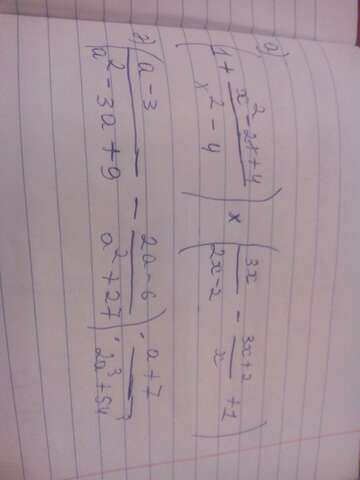 a) (4 + \frac{x^2-2x+4}{x^2-4}) x (\frac{3x}{2x-2} - \frac{3x+2}{x} + 1)
2) (\frac{a-3}{a^2-3a+9} - \frac{2a-6}{a^2+27}) : \frac{a+7}{2a^3+54}